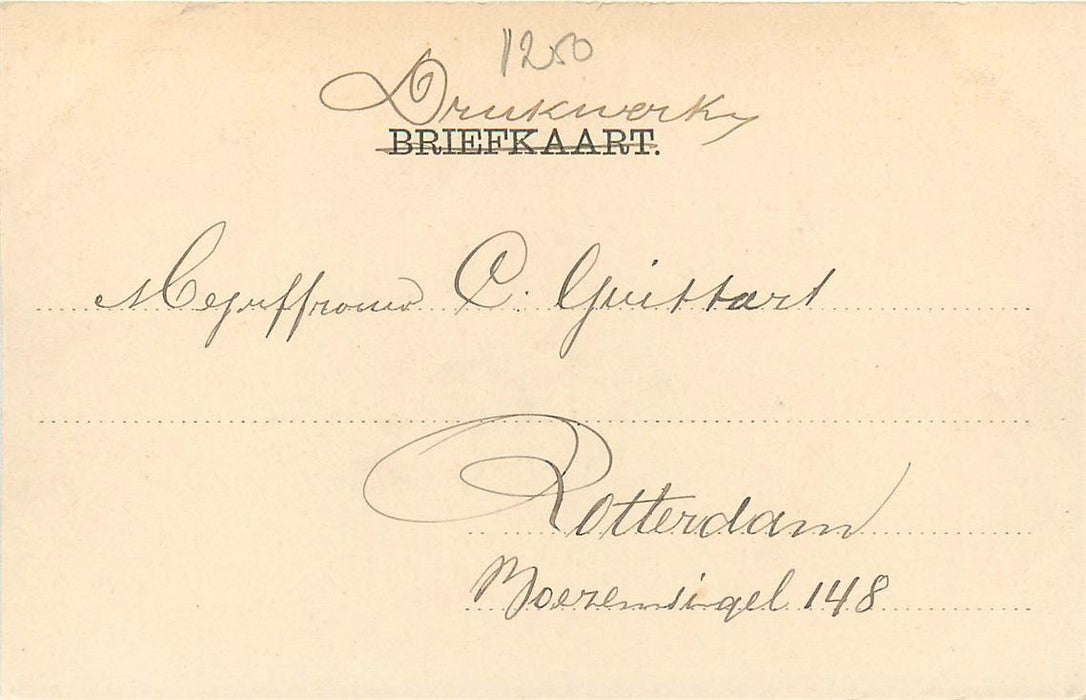 1250
Drukwerk
BRIEFKAART.
Mejuffrouw C. Guittart
Rotterdam
Boezemsingel 148